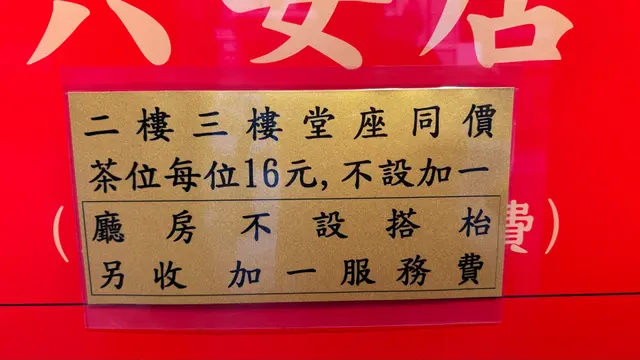 六安居
二樓三樓堂座同價
茶位每位16元,不設加一
廳房不設搭枱
另收加一服務費
（ 費）